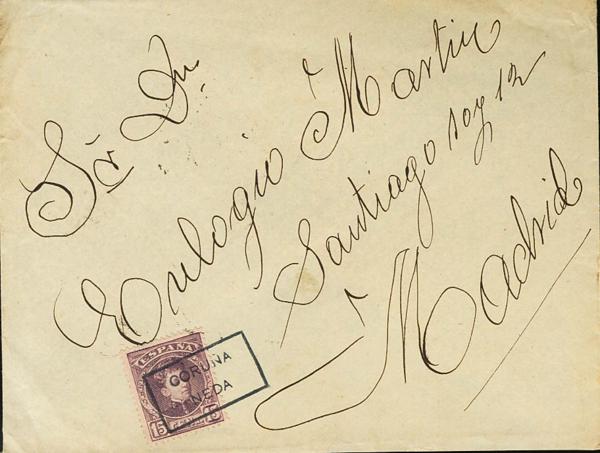 Sr. Dn.
Eulogio Martin
Santiago 10 y 12
Madrid
ESPAÑA
CORUÑA
NEDA
15 15